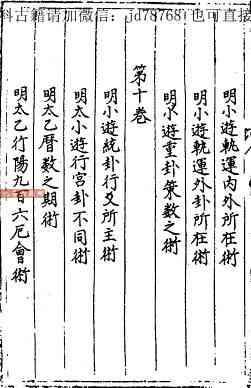 科古籍请加微信：jd78768 也可直接
明小遊軌運內外所在術
明小遊軌運外卦所在術
明小遊重卦策數之術
第十卷
明小遊統卦行爻所主術
明太小遊行宮卦不同術
明太乙曆數之期術
明太乙行陽九百六厄會術